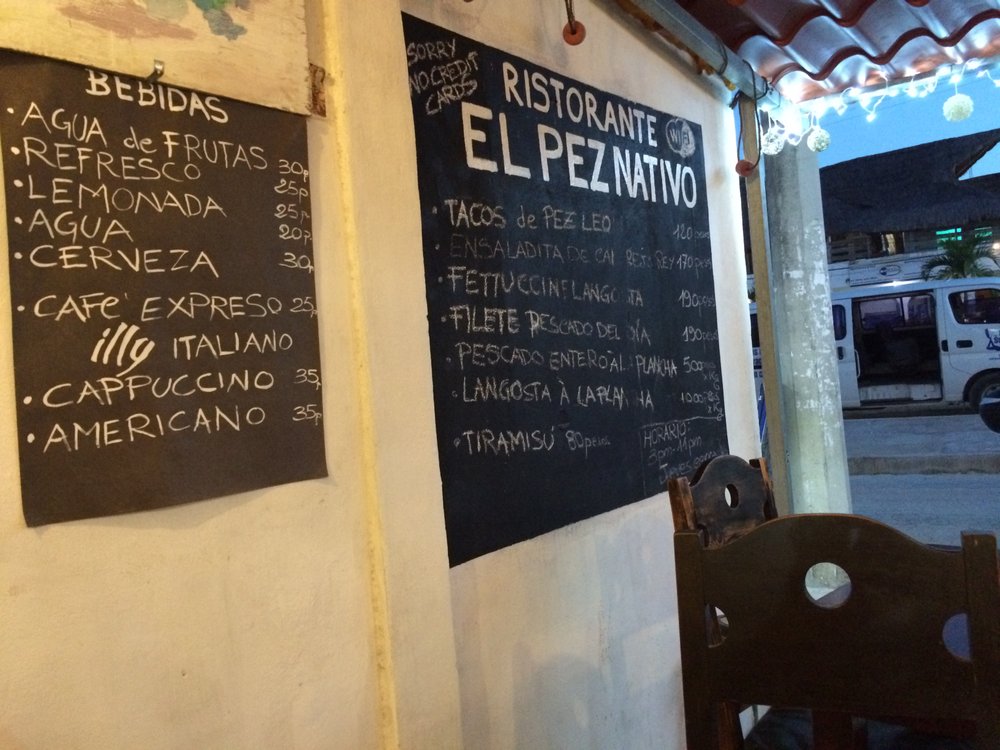 BEBIDAS
• AGUA de FRUTAS 30p
• REFRESCO 25p
• LEMONADA 25p
• AGUA 20p
• CERVEZA 30p
• CAFE' EXPRESO 25p
illy ITALIANO
• CAPPUCCINO 35p
• AMERICANO 35p
SORRY
NO CREDIT
CARDS
RISTORANTE
WiFi
EL PEZ NATIVO
• TACOS de PEZ LEO 120 pesos
ENSALADITA DE REY 170 pesos
• FETTUCCINE LANGOSTA 190 pesos
• FILETE PESCADO DEL DÍA 190 pesos
• PESCADO ENTERO PLANCHA 500
x Kg
• LANGOSTA À LA PLANCHA 1000
x Kg
• TIRAMISÚ 80 pesos
HORARIO:
3pm-11pm
Jueves